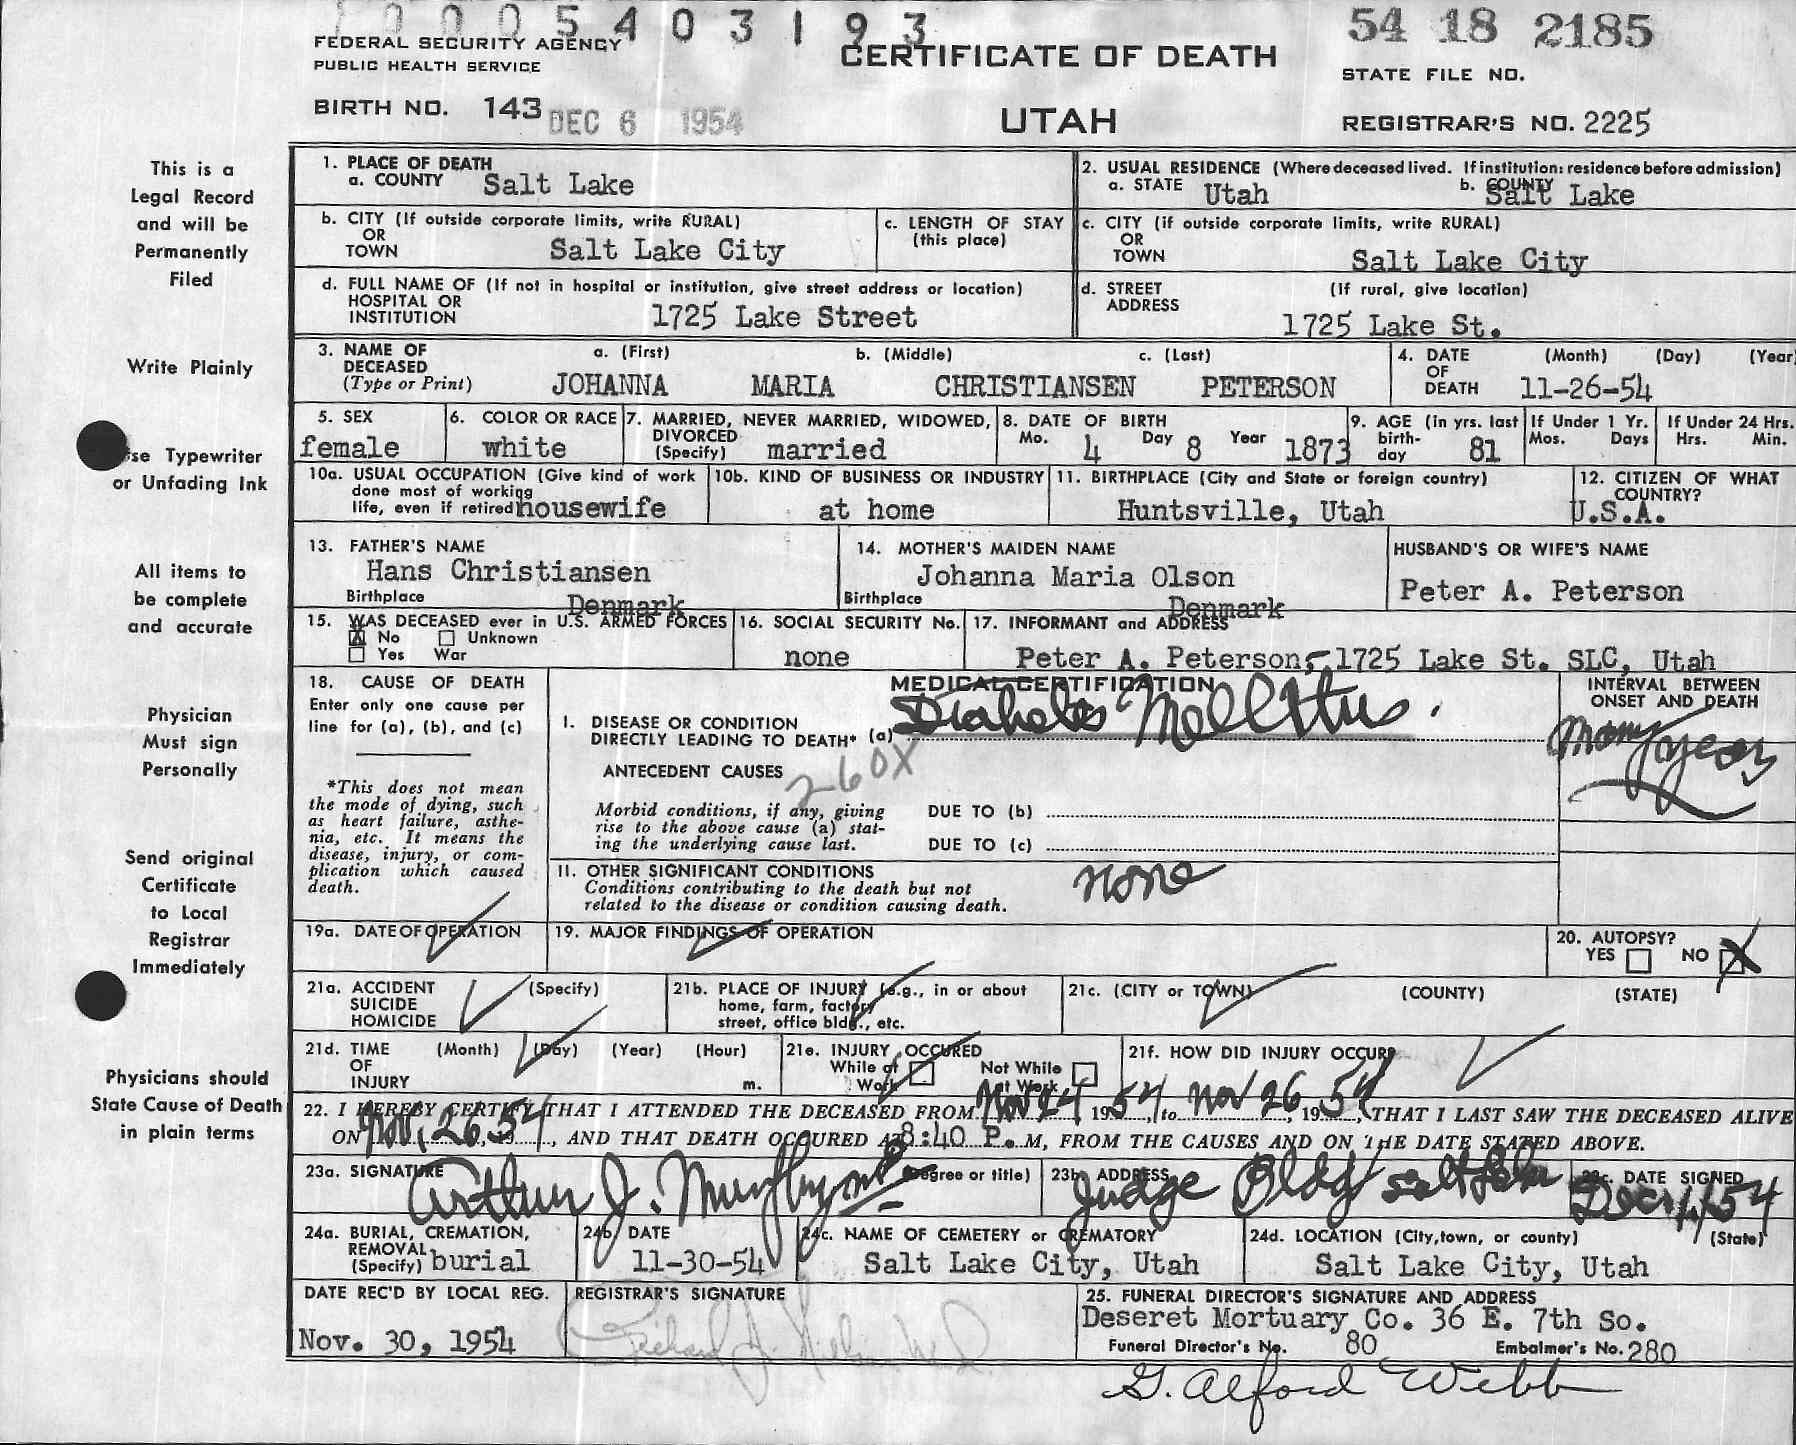 0005403193
54 18 2185
FEDERAL SECURITY AGENCY
PUBLIC HEALTH SERVICE
CERTIFICATE OF DEATH
STATE FILE NO.
BIRTH NO. 143 DEC 6 1954
UTAH
REGISTRAR'S NO. 2225
This is a
Legal Record
and will be
Permanently
Filed
Write Plainly
se Typewriter
or Unfading Ink
All items to
be complete
and accurate
Physician
Must sign
Personally
Send original
Certificate
to Local
Registrar
Immediately
Physicians should
State Cause of Death
in plain terms
1. PLACE OF DEATH
a. COUNTY Salt Lake
2. USUAL RESIDENCE (Where deceased lived. If institution: residence before admission)
a. STATE Utah b. COUNTY Salt Lake
b. CITY (If outside corporate limits, write RURAL)
OR
TOWN Salt Lake City
c. LENGTH OF STAY
(this place)
c. CITY (if outside corporate limits, write RURAL)
OR
TOWN Salt Lake City
d. FULL NAME OF (If not in hospital or institution, give street address or location)
HOSPITAL OR
INSTITUTION 1725 Lake Street
d. STREET (If rural, give location)
ADDRESS 1725 Lake St.
3. NAME OF a. (First) b. (Middle) c. (Last)
DECEASED
(Type or Print) JOHANNA MARIA CHRISTIANSEN PETERSON
4. DATE (Month) (Day) (Year
OF
DEATH 11-26-54
5. SEX
female
6. COLOR OR RACE
white
7. MARRIED, NEVER MARRIED, WIDOWED,
DIVORCED
(Specify) married
8. DATE OF BIRTH
Mo. 4 Day 8 Year 1873
9. AGE (in yrs. last
birth-
day 81
If Under 1 Yr.
Mos. Days
If Under 24 Hrs.
Hrs. Min.
10a. USUAL OCCUPATION (Give kind of work
done most of working
life, even if retired housewife
10b. KIND OF BUSINESS OR INDUSTRY
at home
11. BIRTHPLACE (City and State or foreign country)
Huntsville, Utah
12. CITIZEN OF WHAT
COUNTRY?
U.S.A.
13. FATHER'S NAME
Hans Christiansen
Birthplace Denmark
14. MOTHER'S MAIDEN NAME
Johanna Maria Olson
Birthplace Denmark
HUSBAND'S OR WIFE'S NAME
Peter A. Peterson
15. WAS DECEASED ever in U.S. ARMED FORCES
X No Unknown
Yes War
16. SOCIAL SECURITY No.
none
17. INFORMANT and ADDRESS
Peter A. Peterson, 1725 Lake St. SLC, Utah
18. CAUSE OF DEATH
Enter only one cause per
line for (a), (b), and (c)
*This does not mean
the mode of dying, such
as heart failure, asthe-
nia, etc. It means the
disease, injury, or com-
plication which caused
death.
MEDICAL CERTIFICATION
I. DISEASE OR CONDITION
DIRECTLY LEADING TO DEATH* (a) Diabetes Mellitus.
INTERVAL BETWEEN
ONSET AND DEATH
Many years
ANTECEDENT CAUSES 260X
Morbid conditions, if any, giving
rise to the above cause (a) stat-
ing the underlying cause last.
DUE TO (b)
DUE TO (c)
11. OTHER SIGNIFICANT CONDITIONS
Conditions contributing to the death but not
related to the disease or condition causing death.
none
19a. DATE OF OPERATION
19. MAJOR FINDINGS OF OPERATION
20. AUTOPSY?
YES NO X
21a. ACCIDENT (Specify)
SUICIDE
HOMICIDE
21b. PLACE OF INJURY (e.g., in or about
home, farm, factory
street, office bldg., etc.
21c. (CITY or TOWN) (COUNTY) (STATE)
21d. TIME (Month) (Day) (Year) (Hour)
OF
INJURY m.
21e. INJURY OCCURED
While at
Work
Not While
at Work
21f. HOW DID INJURY OCCUR?
22. I HEREBY CERTIFY THAT I ATTENDED THE DECEASED FROM Nov 24 1954, to Nov 26, 1954, THAT I LAST SAW THE DECEASED ALIVE
ON Nov. 26, 54, AND THAT DEATH OCCURED AT 8:40 P. M, FROM THE CAUSES AND ON THE DATE STATED ABOVE.
23a. SIGNATURE (Degree or title)
Arthur J. Murphy md
23b. ADDRESS
Judge Bldg Salt Lake
23c. DATE SIGNED
Dec. 1, 54
24a. BURIAL, CREMATION,
REMOVAL
(Specify) burial
24b. DATE
11-30-54
24c. NAME OF CEMETERY or CREMATORY
Salt Lake City, Utah
24d. LOCATION (City, town, or county) (State)
Salt Lake City, Utah
DATE REC'D BY LOCAL REG.
Nov. 30, 1954
REGISTRAR'S SIGNATURE
25. FUNERAL DIRECTOR'S SIGNATURE AND ADDRESS
Deseret Mortuary Co. 36 E. 7th So.
Funeral Director's No. 80 Embalmer's No. 280
G. Alford Webb